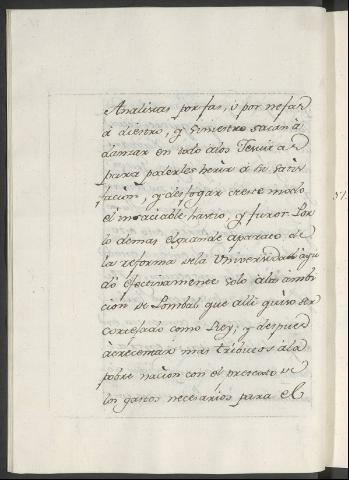 Analistas por fas, ò por nefas
à diestro, y siniestro sacan à
danzar en todo alos Jesuitas
para poderles herir à su satis
facion, y desfogar deste modo
el insaciable havio, y furor. Por
lo demas el grande aparato de
la reforma dela Universidad ayu
dò efectivamente solo àla ambi
cion de Pombal que alli quiso ser
cortejado como Rey, y despues
àcrecentar mas tributos àla
pobre nacion con el pretexto de
los gastos necesarios para el